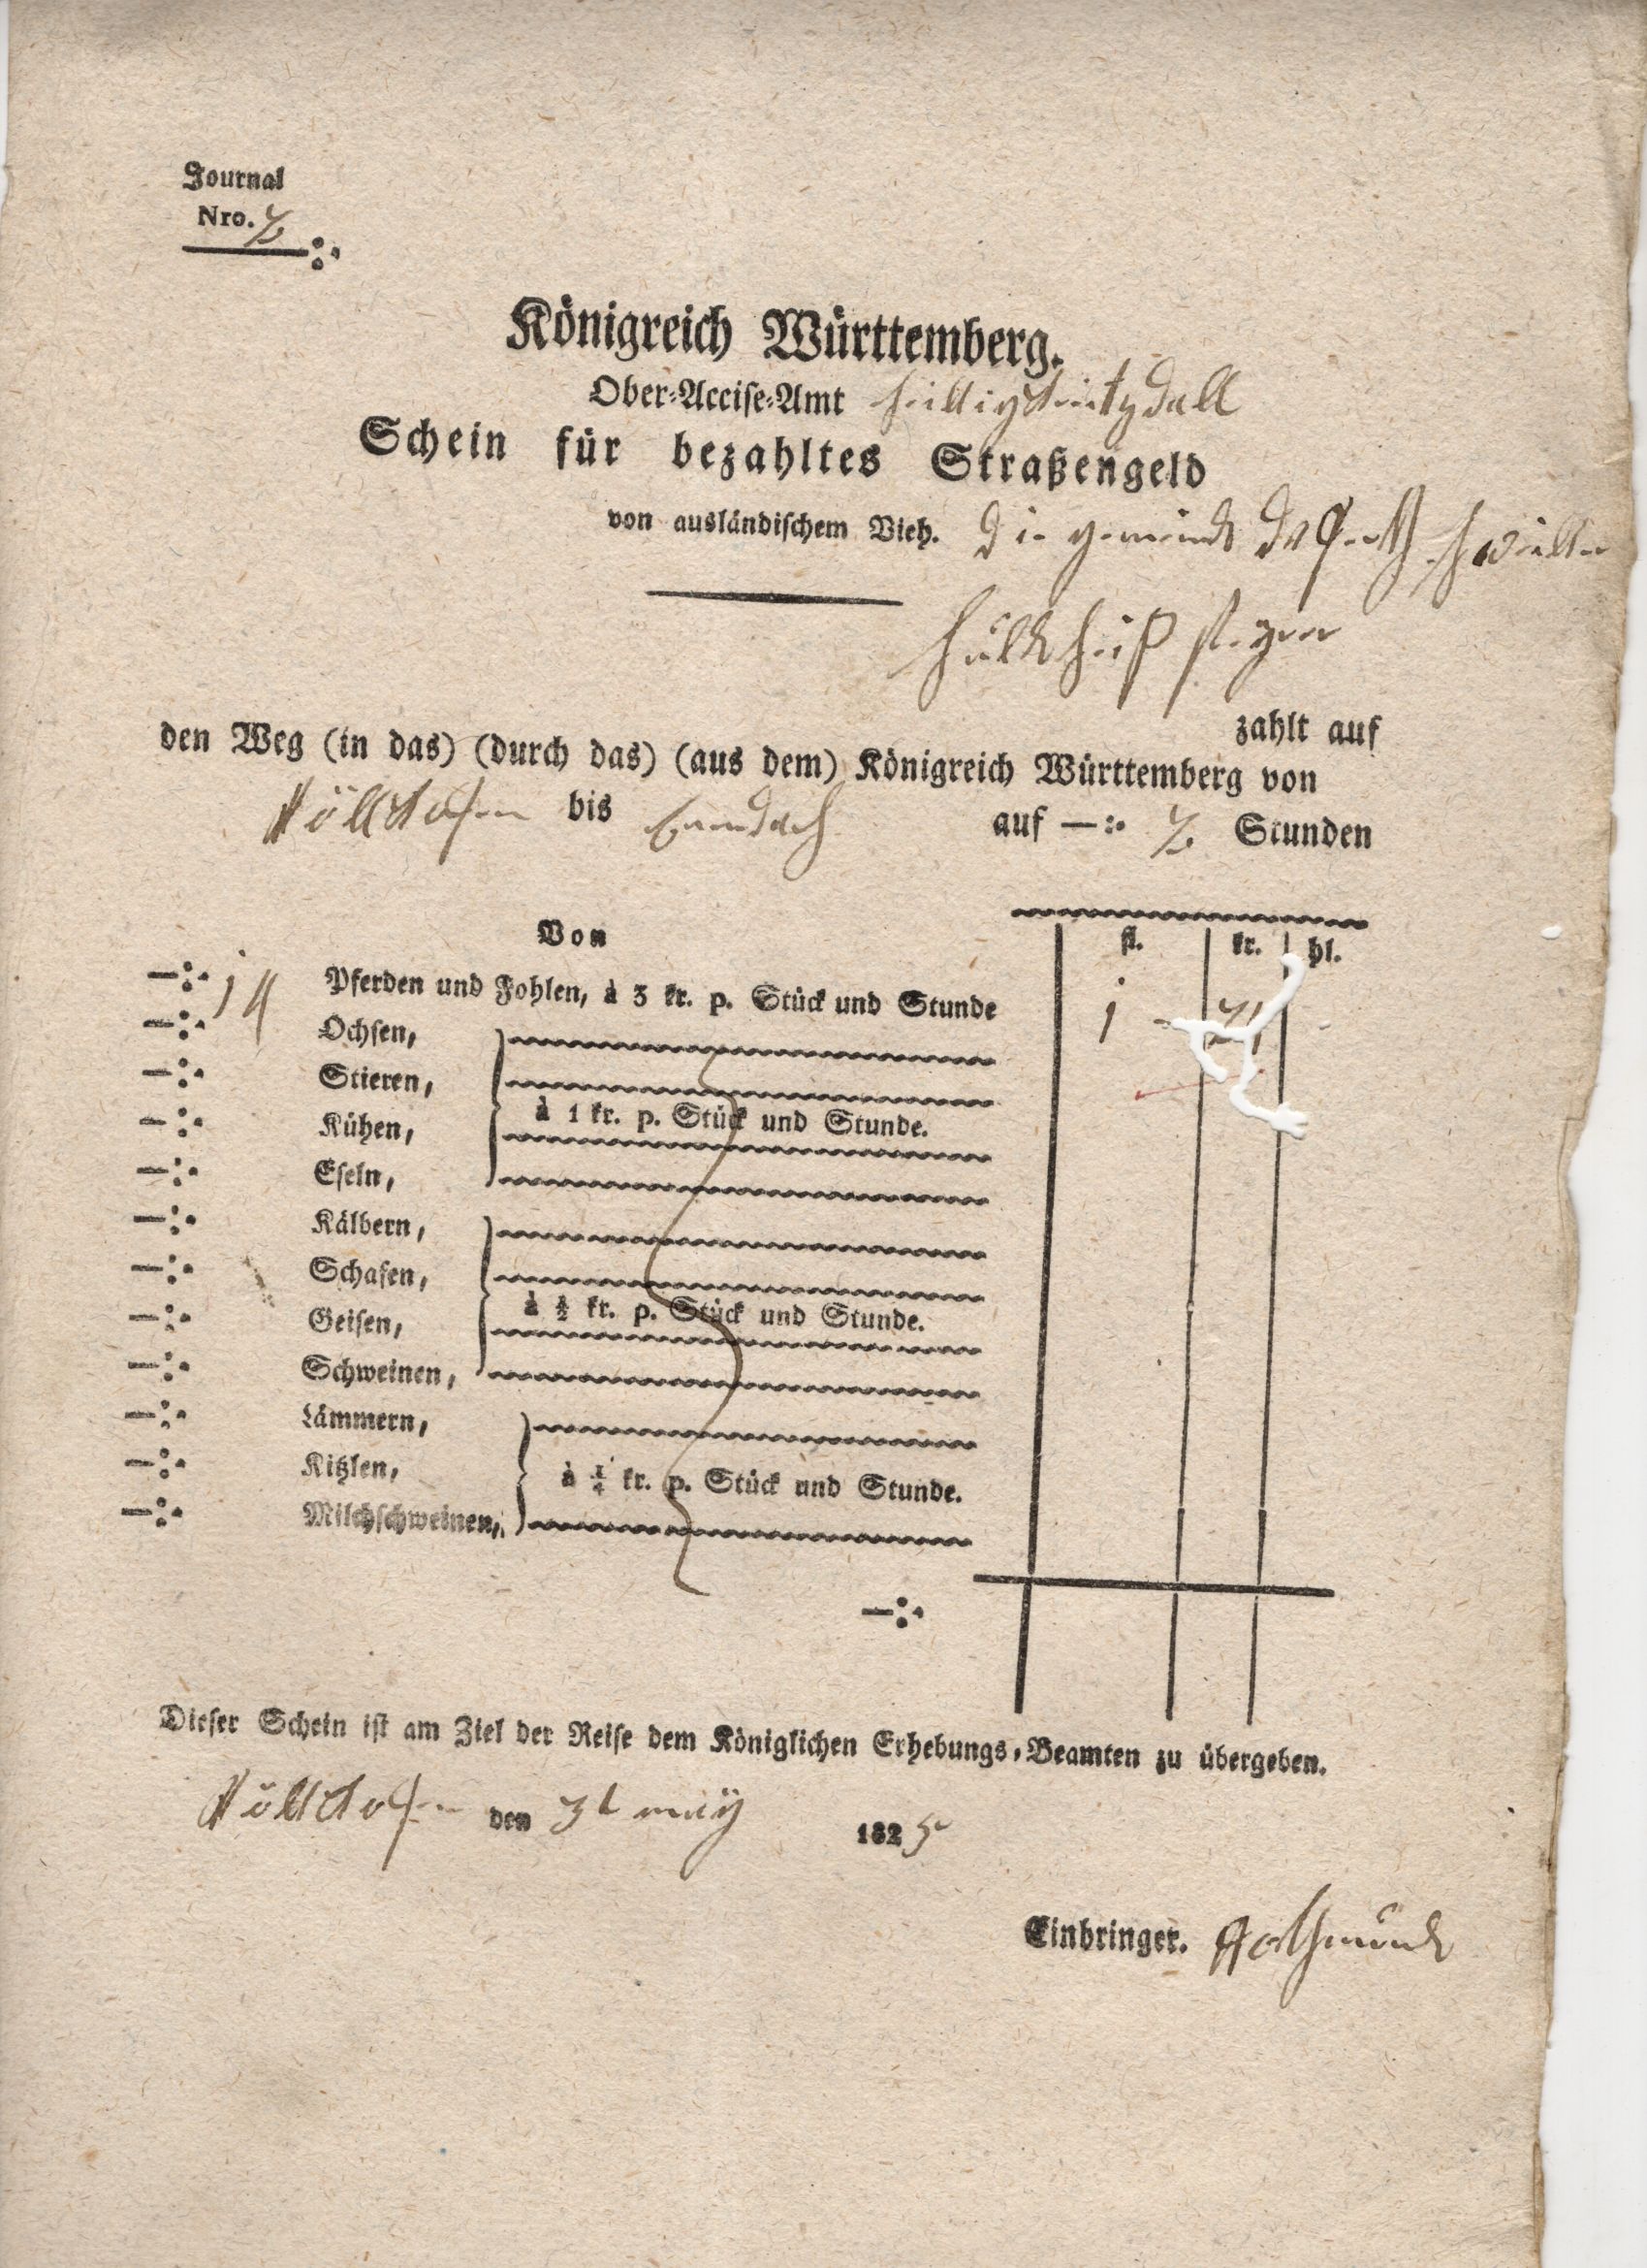 Journal
Nro.
Königreich Württemberg.
Ober-Accise-Amt
Schein für bezahltes Straßengeld
von ausländischem Vieh. die gemeinde
zahlt auf
den Weg (in das) (durch das) (aus dem) Königreich Württemberg von
bis auf —:• Stunden
Von
fl. kr. hl.
—:• 14 Pferden und Fohlen, à 3 kr. p. Stück und Stunde 1
—:• Ochsen,
—:• Stieren,
—:• Kühen, à 1 kr. p. Stück und Stunde.
—:• Eseln,
—:• Kälbern,
—:• Schafen,
—:• Geisen, à ½ kr. p. Stück und Stunde.
—:• Schweinen,
—:• Lämmern,
—:• Kitzlen, à ¼ kr. p. Stück und Stunde.
—:• Milchschweinen,
—:•
Dieser Schein ist am Ziel der Reise dem Königlichen Erhebungs-Beamten zu übergeben.
den 31 may 1825
Einbringer.